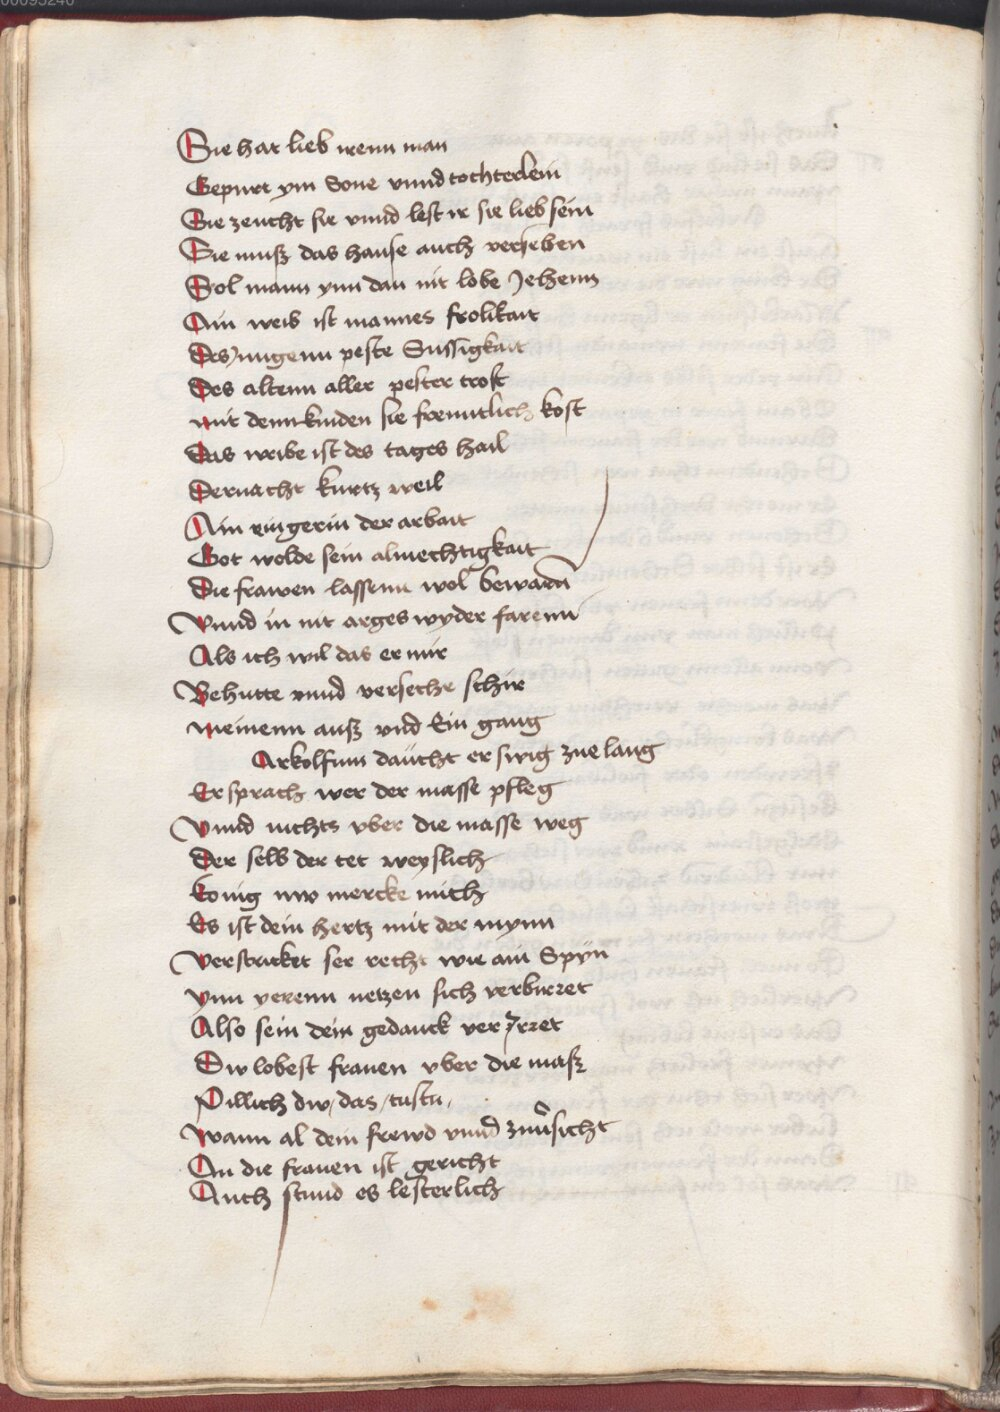 00095240
Sie hat lieb irenn man
Gepurt ym Sone vnnd tochterlein
Sie zeucht sie vnnd lest ir sie lieb sein
Sie muß das hause auch versehen
Sol mann ynn dan nit lobe Jehenn
Ain weib ist mannes frolikait
Des Jungenn peste Sussigkait
Des altenn aller pester trost
mit denn kinden sie freuntlich kost
Das weibe ist des tages hail
Der nacht kurtz weil
Ain ringerin der arbait
Got wolde sein almechtigkait
Die frawen lassenn wol bewarn
Vnnd in nit arges wyder farenn
Als ich wil das er mir
Behutte vnnd versehe schir
meinenn auß vnd Ein gang
Arkolfum daucht er swig zue lang
Er sprach wer der masse pfleg
Vnnd nichts vber die masse weg
Der selb der tet weyslich
Konig nw mercke mich
Es ist dein hertz mit der mynn
Verstricket ser recht wie ain Spyn
Ynn yerenn netzen sich verbirret
Also sein dein gedanck ver Jrret
Dw lobest frauen vber die maß
Pillich dw das tustu
Wann al dein frewd vnnd zuuersicht
An die frauen ist gericht
Auch stund es lesterlich